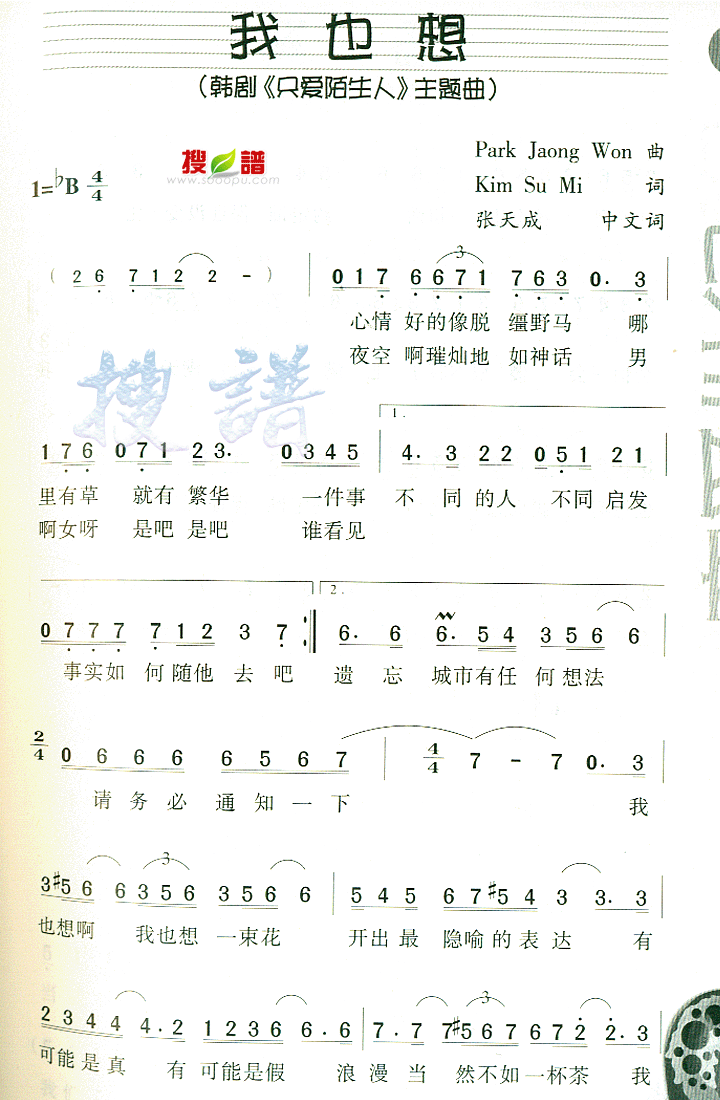 我也想
（韩剧《只爱陌生人》主题曲）
搜谱
www.sooopu.com
Park Jaong Won 曲
1=♭B 4/4
Kim Su Mi 词
张天成 中文词
( 2 6 7 1 2 2 2 - ) 0 1 7 6 6 7 1 7 6 3 0. 3
3
心情 好的像脱 缰野马 哪
夜空 啊璀灿地 如神话 男
搜譜
1.
1 7 6 0 7 1 2 3. 0 3 4 5 4. 3 2 2 0 5 1 2 1
里有草 就有 繁华 一件事 不 同的人 不同启发
啊女呀 是吧 是吧 谁看见
2.
0 7 7 7 7 1 2 3 7 :‖ 6. 6 6. 5 4 3 5 6 6 6
事实如 何随他 去吧 遗忘 城市有任 何想法
2/4 0 6 6 6 6 5 6 7 4/4 7 - 7 0. 3
请务必 通知一下 我
3
3 #5 6 6 3 5 6 3 5 6 6 5 4 5 6 7 #5 4 3 3. 3
也想啊 我也想 一束花 开出最 隐喻的表达 有
3
2 3 4 4 4. 2 1 2 3 6 6. 6 7. 7 7 #5 6 7 6 7 7 2 2. 2
可能是真 有 可能是假 浪漫当 然不如一杯茶 我